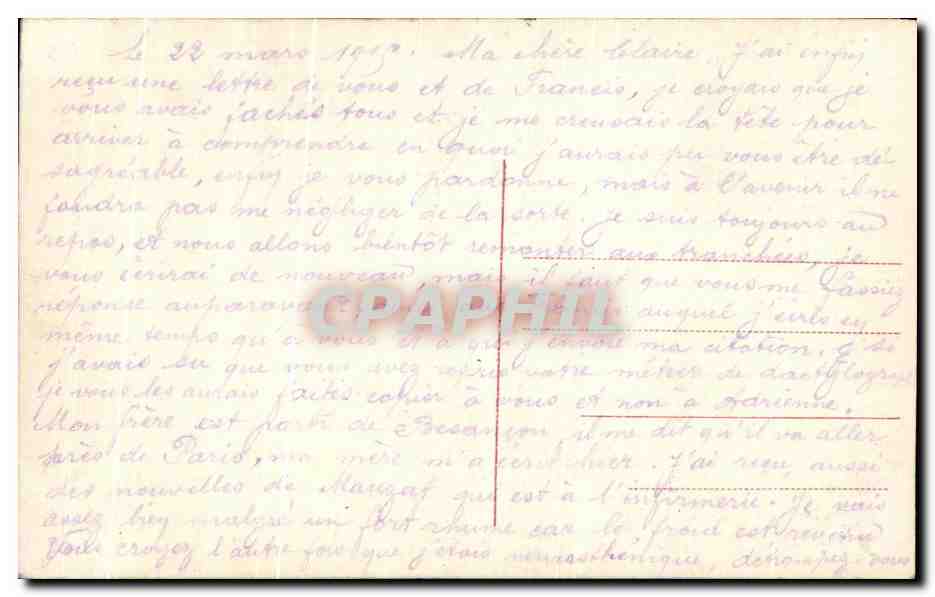 Le 22 mars 191. Ma chère Claire, J'ai enfin
reçu une lettre de vous et de Francis, je croyais que je
vous avais fachés tous et je me creusais la tête pour
arriver à comprendre en quoi j'aurais pu vous être dé-
sagréable, enfin je vous pardonne, mais à l'avenir il ne
foudra pas me négliger de la sorte. je suis toujours au
repos, et nous allons bientôt remonter aux tranchées, je
vous écrirai de nouveau, mais il faut que vous me fassiez
réponse auparavant auquel j'écris en
même temps qu'à vous et à qui j'envoie ma citation. si
j'avais su que vous avez repris votre métier de dactylographe
je vous les aurais faites copier à vous et non à Adrienne.
Mon frère est parti de Besançon, il me dit qu'il va aller
près de Paris, ma mère m'a écrit hier. J'ai reçu aussi
des nouvelles de Mauzat qui est à l'infirmerie. Je vais
assez bien malgré un fort rhume car le froid est revenu
Vous croyez l'autre fois que j'étais neurasthenique, détrompez-vous
CPAPHIL